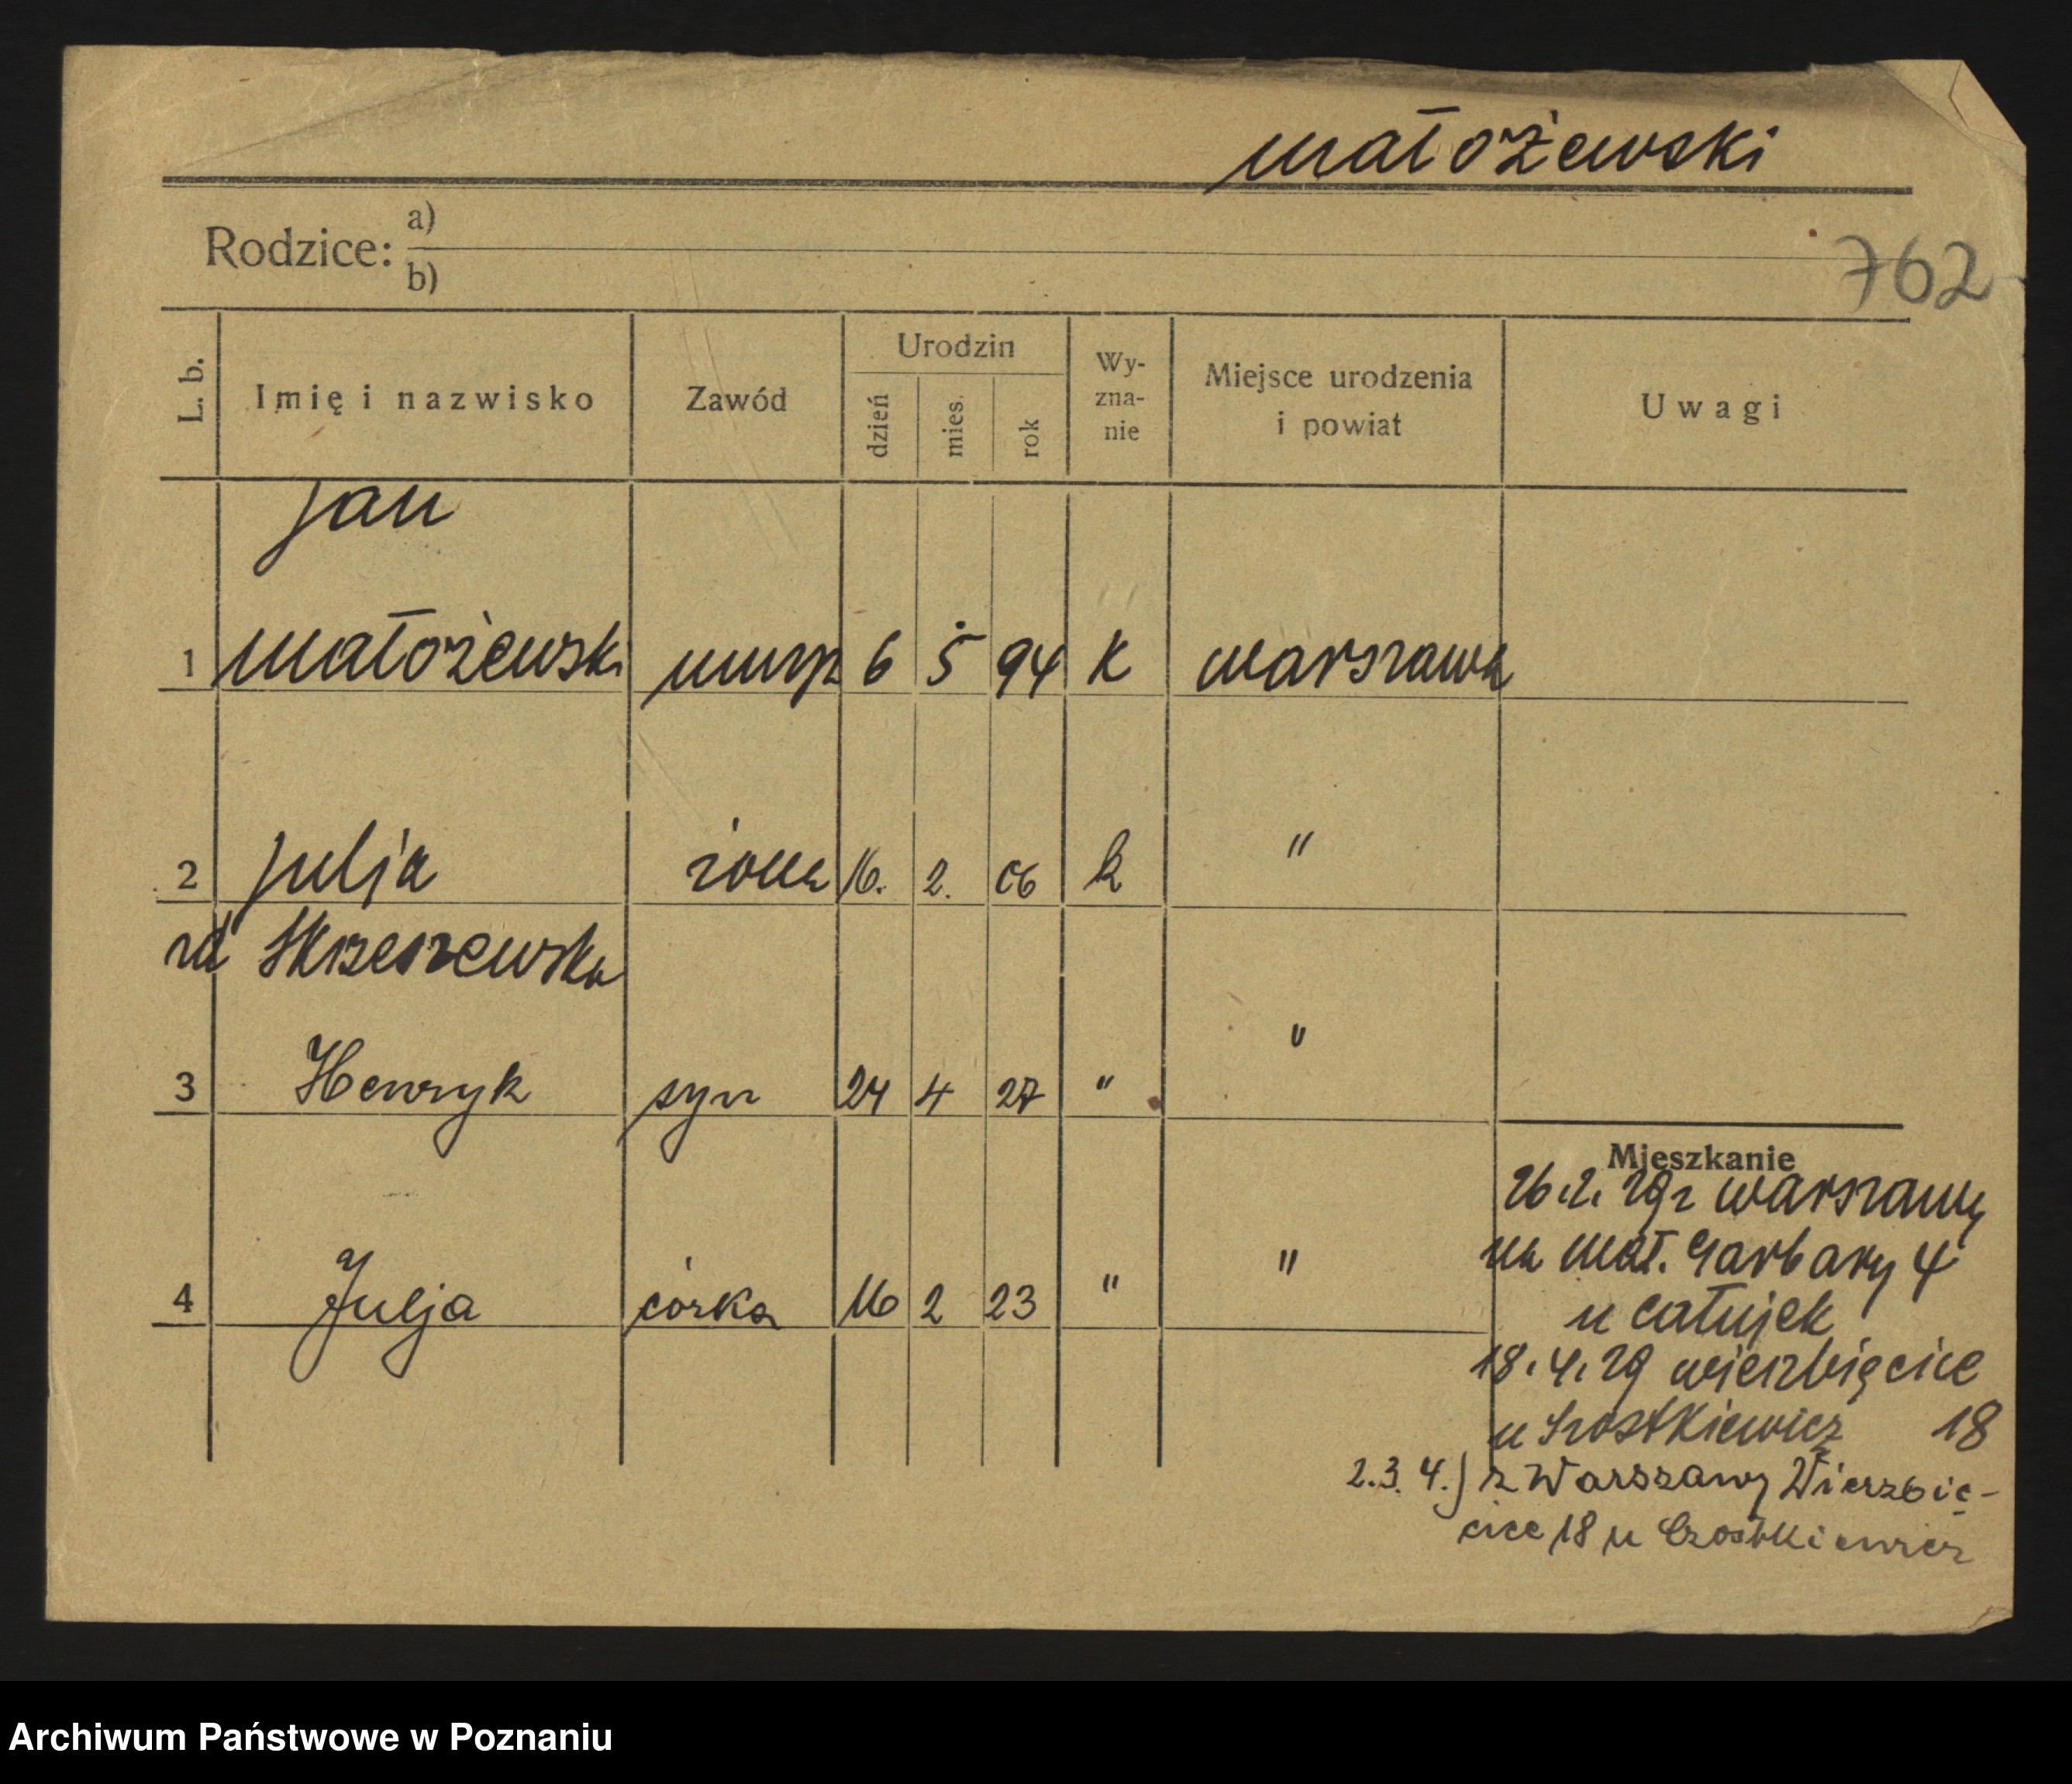 Małożewski
Rodzice: a)
b)
762
L. b.
Imię i nazwisko
Zawód
Urodzin
dzień
mies.
rok
Wy-
zna-
nie
Miejsce urodzenia
i powiat
Uwagi
Jan
1 Małożewski 6 5 94 K Warszawa
2 Julja żona 16. 2. 06 k "
zd Skrzeszewska
3 Henryk syn 24 4 27 " "
4 Julja córka 16 2 23 " "
Mieszkanie
26.2.29 z Warszawy
na Mał. Garbary 4
u Całujek
18.4.29 Wierzbięcice
u Szostkiewicz 18
2.3.4.) z Warszawy Wierzbię-
cice 18 u
Archiwum Państwowe w Poznaniu